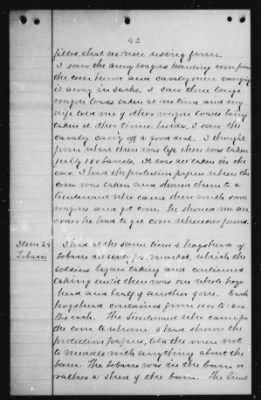 42
filled, that we were using from.
I saw the army wagons hauling corn from
the corn house and cavalry men carrying
it away in sacks. I saw three large
wagon loads taken at one time and my
wife told me of other wagon loads being
taken at other times, besides, I saw the
cavalry carry off a good deal. I thought
from what there was left there was taken
fully 100 barrels. It was all taken in the
ear. I had the protection papers when the
corn was taken and showed them to a
lieutenant who came there with some
wagons and got corn. He showed me an
order he had to get corn wherever found.
Item 24
Tobacco
I had at the same time 4 hogsheads of
tobacco all ready for market, which the
soldiers began taking and continued
taking until there was one whole hogs-
head and half of another gone. Each
hogshead contained from 1000 to 1200
lbs each. The lieutenant who came for
the corn to whom I had shown the
protection papers, told the men not
to meddle with anything about the
barn. The tobacco was in the barn or
rather a shed of the barn. The lieut